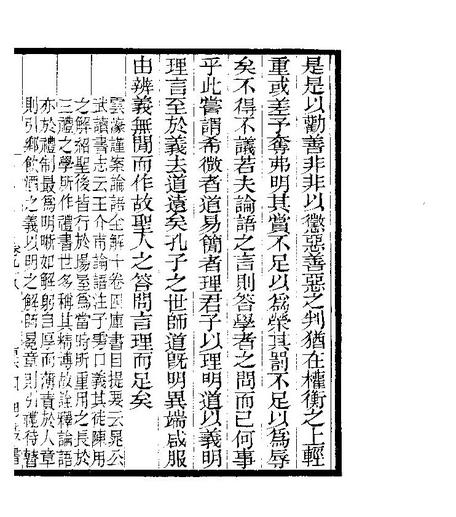 是是以勸善非非以懲惡善惡之判猶在權衡之上輕
重或差予奪弗明其賞不足以爲榮其罰不足以爲辱
矣不得不議若夫論語之言則答學者之問而已何事
乎此嘗謂希微者道易簡者理君子以理明道以義明
理言至於義去道遠矣孔子之世師道旣明異端咸服
由辨義無閒而作故聖人之答問言理而足矣
雲濠謹案論語全解十卷四庫書目提要云晁公
武讀書志云王介甫論語注子雱口義其徒陳用
之解紹聖後皆行於場屋爲當時所重用之長於
三禮之學所作禮書世多稱其精博故詮釋論語
亦於禮制最爲明晰如解躬自厚而薄責於人章
則引鄉飲酒之義以明之解師冕章則引禮待瞽